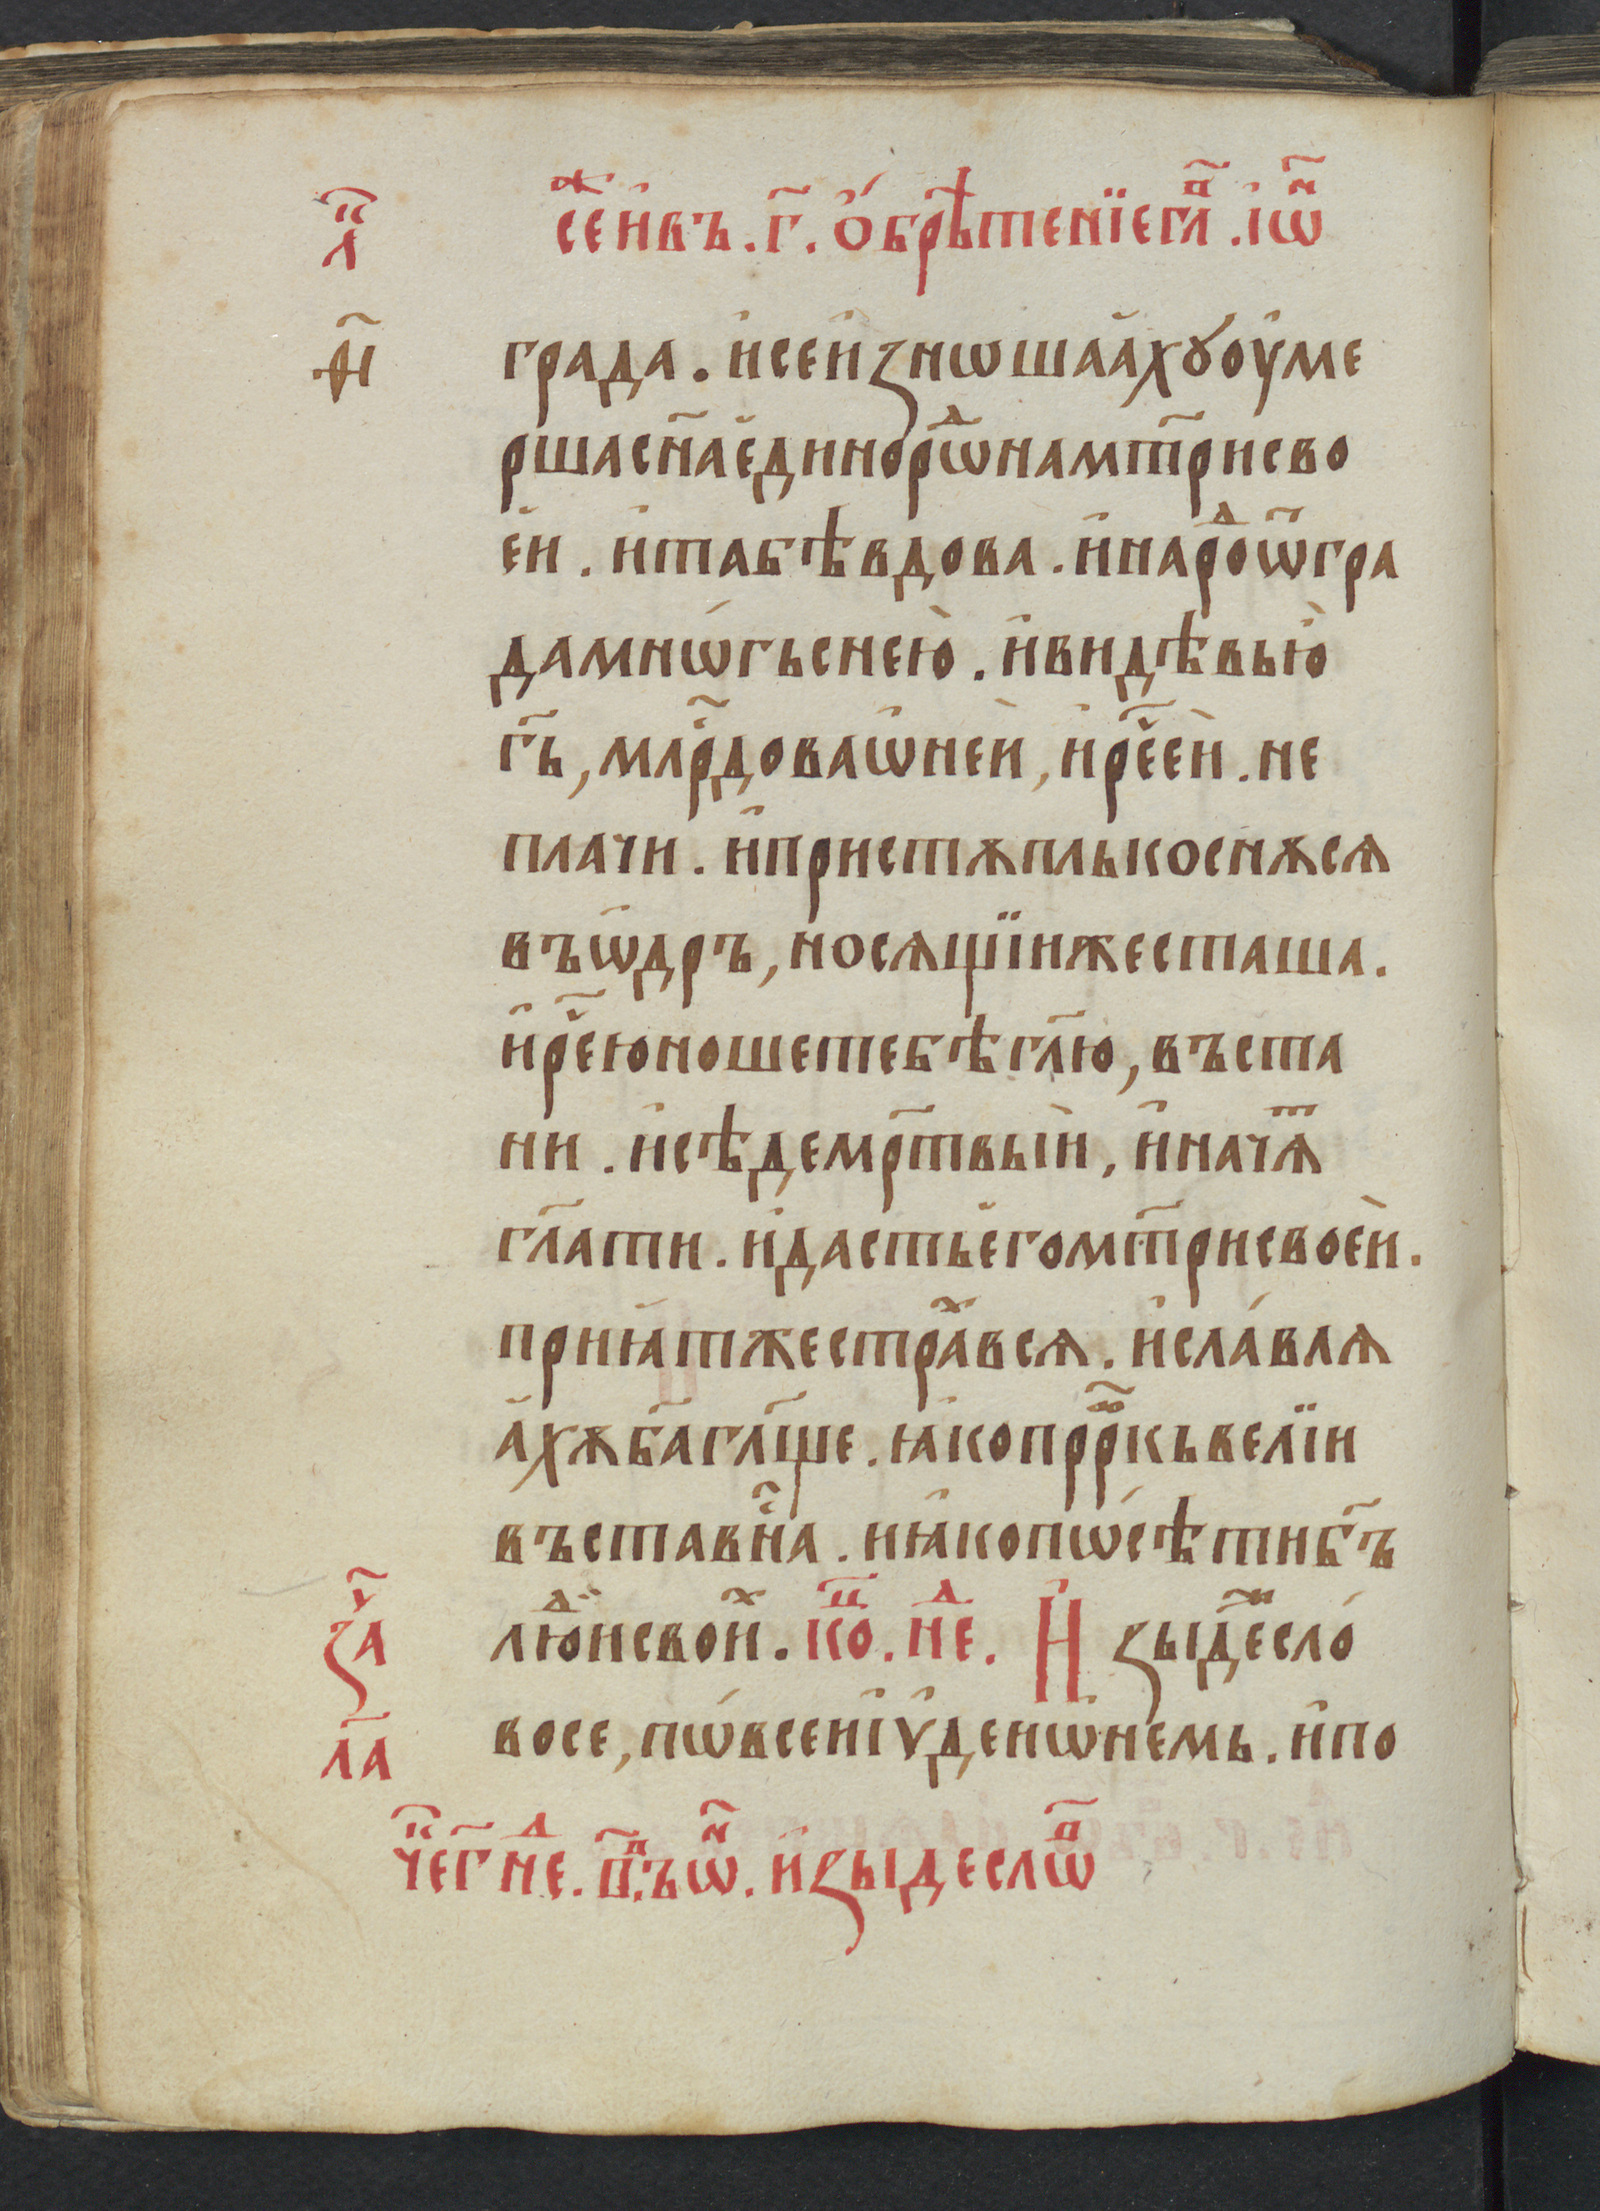 сеⷤ и҆ въ . г҃ . о҆́брѣ́тенїе гл҃ⷡ . і҆ѡⷩ҇
града . и҆ се и҆зношаа҆хꙋ оу҆ме
рша сн҃а є҆диноро́ⷣ на мт҃ри сво
е҆и . и҆ та бѣ вдова . и҆ наро́ⷣ ѿ гра
да мнѡ́гь с нею̀ . и҆ видѣвь ю҆̀
гⷭ҇ь , млⷭ҇рдова ѡ҆ не́и , и҆ рⷱ҇е е҆и . не
плачи . и҆ пристѫпль коснѫся
въ ѡ҆дръ , носящїи же сташа .
и҆ рⷱ҇е ю҆ноше тебѣ гл҃ю , въста
ни . и҆ сѣде мр҃твыи , и҆ начѧⷮ
гл҃ати . и҆ дасть е҆го мт҃ри своеи .
прия҆т же страⷯ вся . и҆ сла́вля
а҆хѫ ба҃ гл҃ще . ꙗ҆ко прⷪ҇ркъ велїи
въста в на́ⷭ . и ꙗ҆ко пѡсѣти бг҃ъ
люⷣи своиⷯ . коⷰ҇ . неⷣ . И зыдеⷤ сло́
во се , пѡ́ всеи і҆ꙋдеи ѡ҆ немь . и҆ по
че҃г неⷣ . п . ъ ѡⷩ҇ . и҆зыде слѡⷡ
л҃
н҃
за҃ⷱ
ла҃